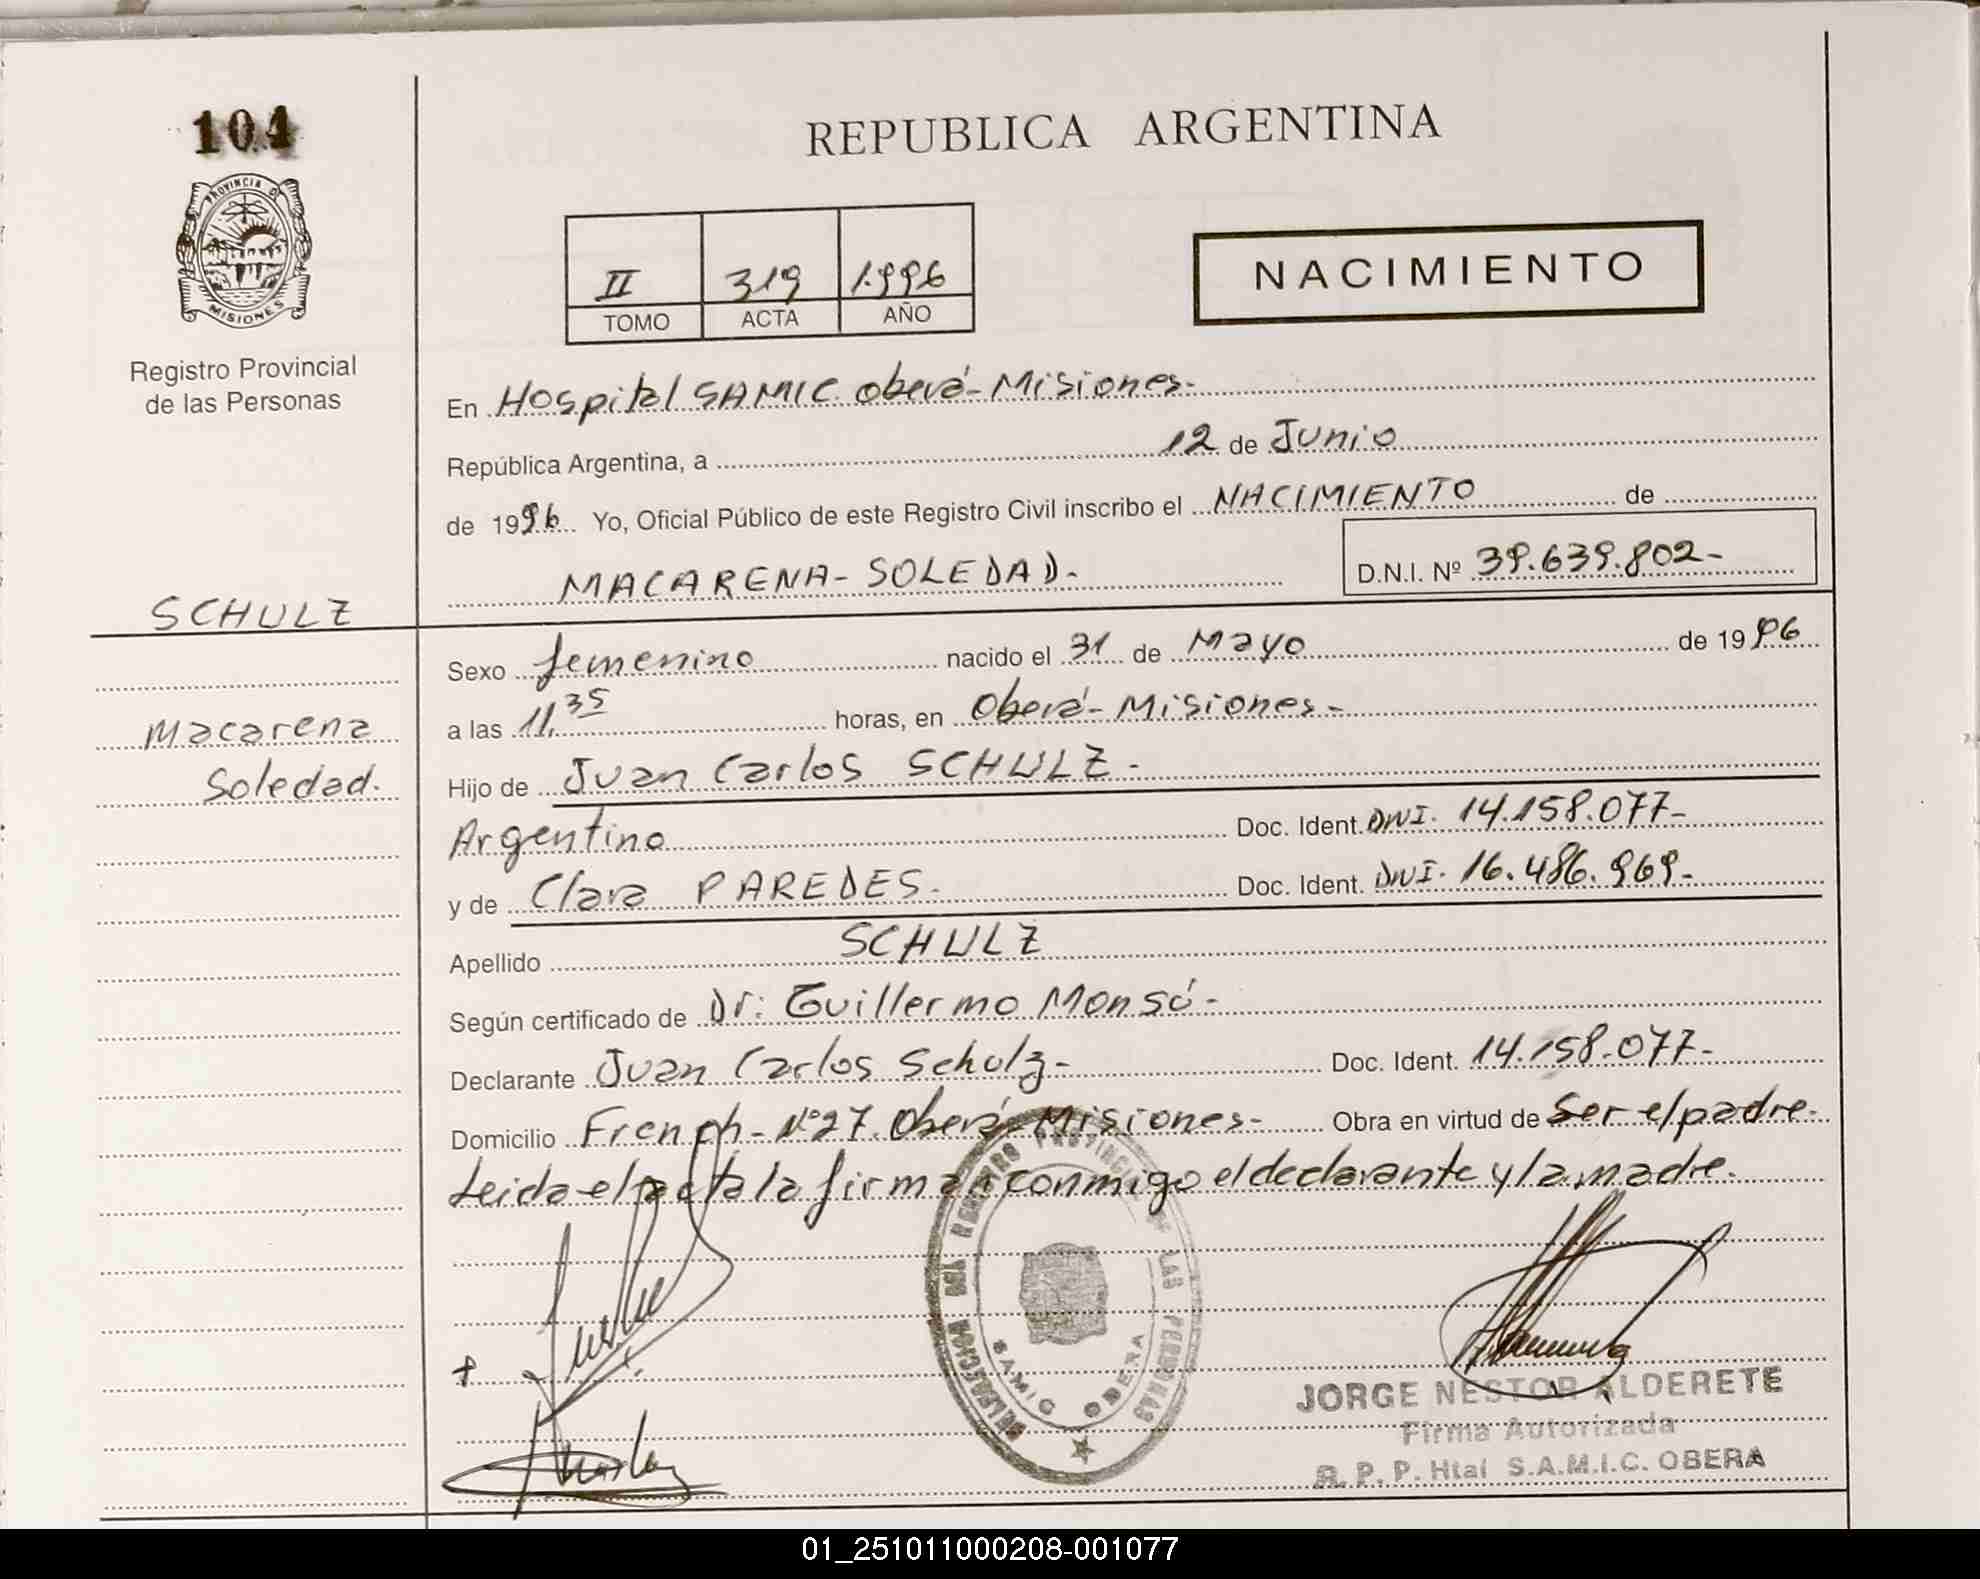 104
PROVINCIA D
MISIONES
Registro Provincial
de las Personas
REPUBLICA ARGENTINA
II 319 1.996
TOMO ACTA AÑO
NACIMIENTO
En Hospital SAMIC. Oberá-Misiones.-
República Argentina, a 12 de Junio
de 1996 Yo, Oficial Público de este Registro Civil inscribo el NACIMIENTO de
MACARENA-SOLEDAD.- D.N.I. Nº 39.639.802-
SCHULZ
Macarena
Soledad.
Sexo femenino nacido el 31 de Mayo de 1996
a las 11,35 horas, en Oberá-Misiones-
Hijo de Juan Carlos SCHULZ-
Argentino Doc. Ident. DNI. 14.158.077-
y de Clara PAREDES- Doc. Ident. DNI. 16.486.969-
Apellido SCHULZ
Según certificado de Dr: Guillermo Monsó-
Declarante Juan Carlos Schulz- Doc. Ident. 14.158.077-
Domicilio French-Nº27. Oberá-Misiones- Obra en virtud de Ser el padre-
Leida el acta la firman conmigo el declarante y la madre.
DELEGACION DEL REGISTRO PROVINCIAL DE LAS PERSONAS
SAMIC OBERA
JORGE NESTOR ALDERETE
Firma Autorizada
R. P. P. Htal S.A.M.I.C. OBERA
01_251011000208-001077